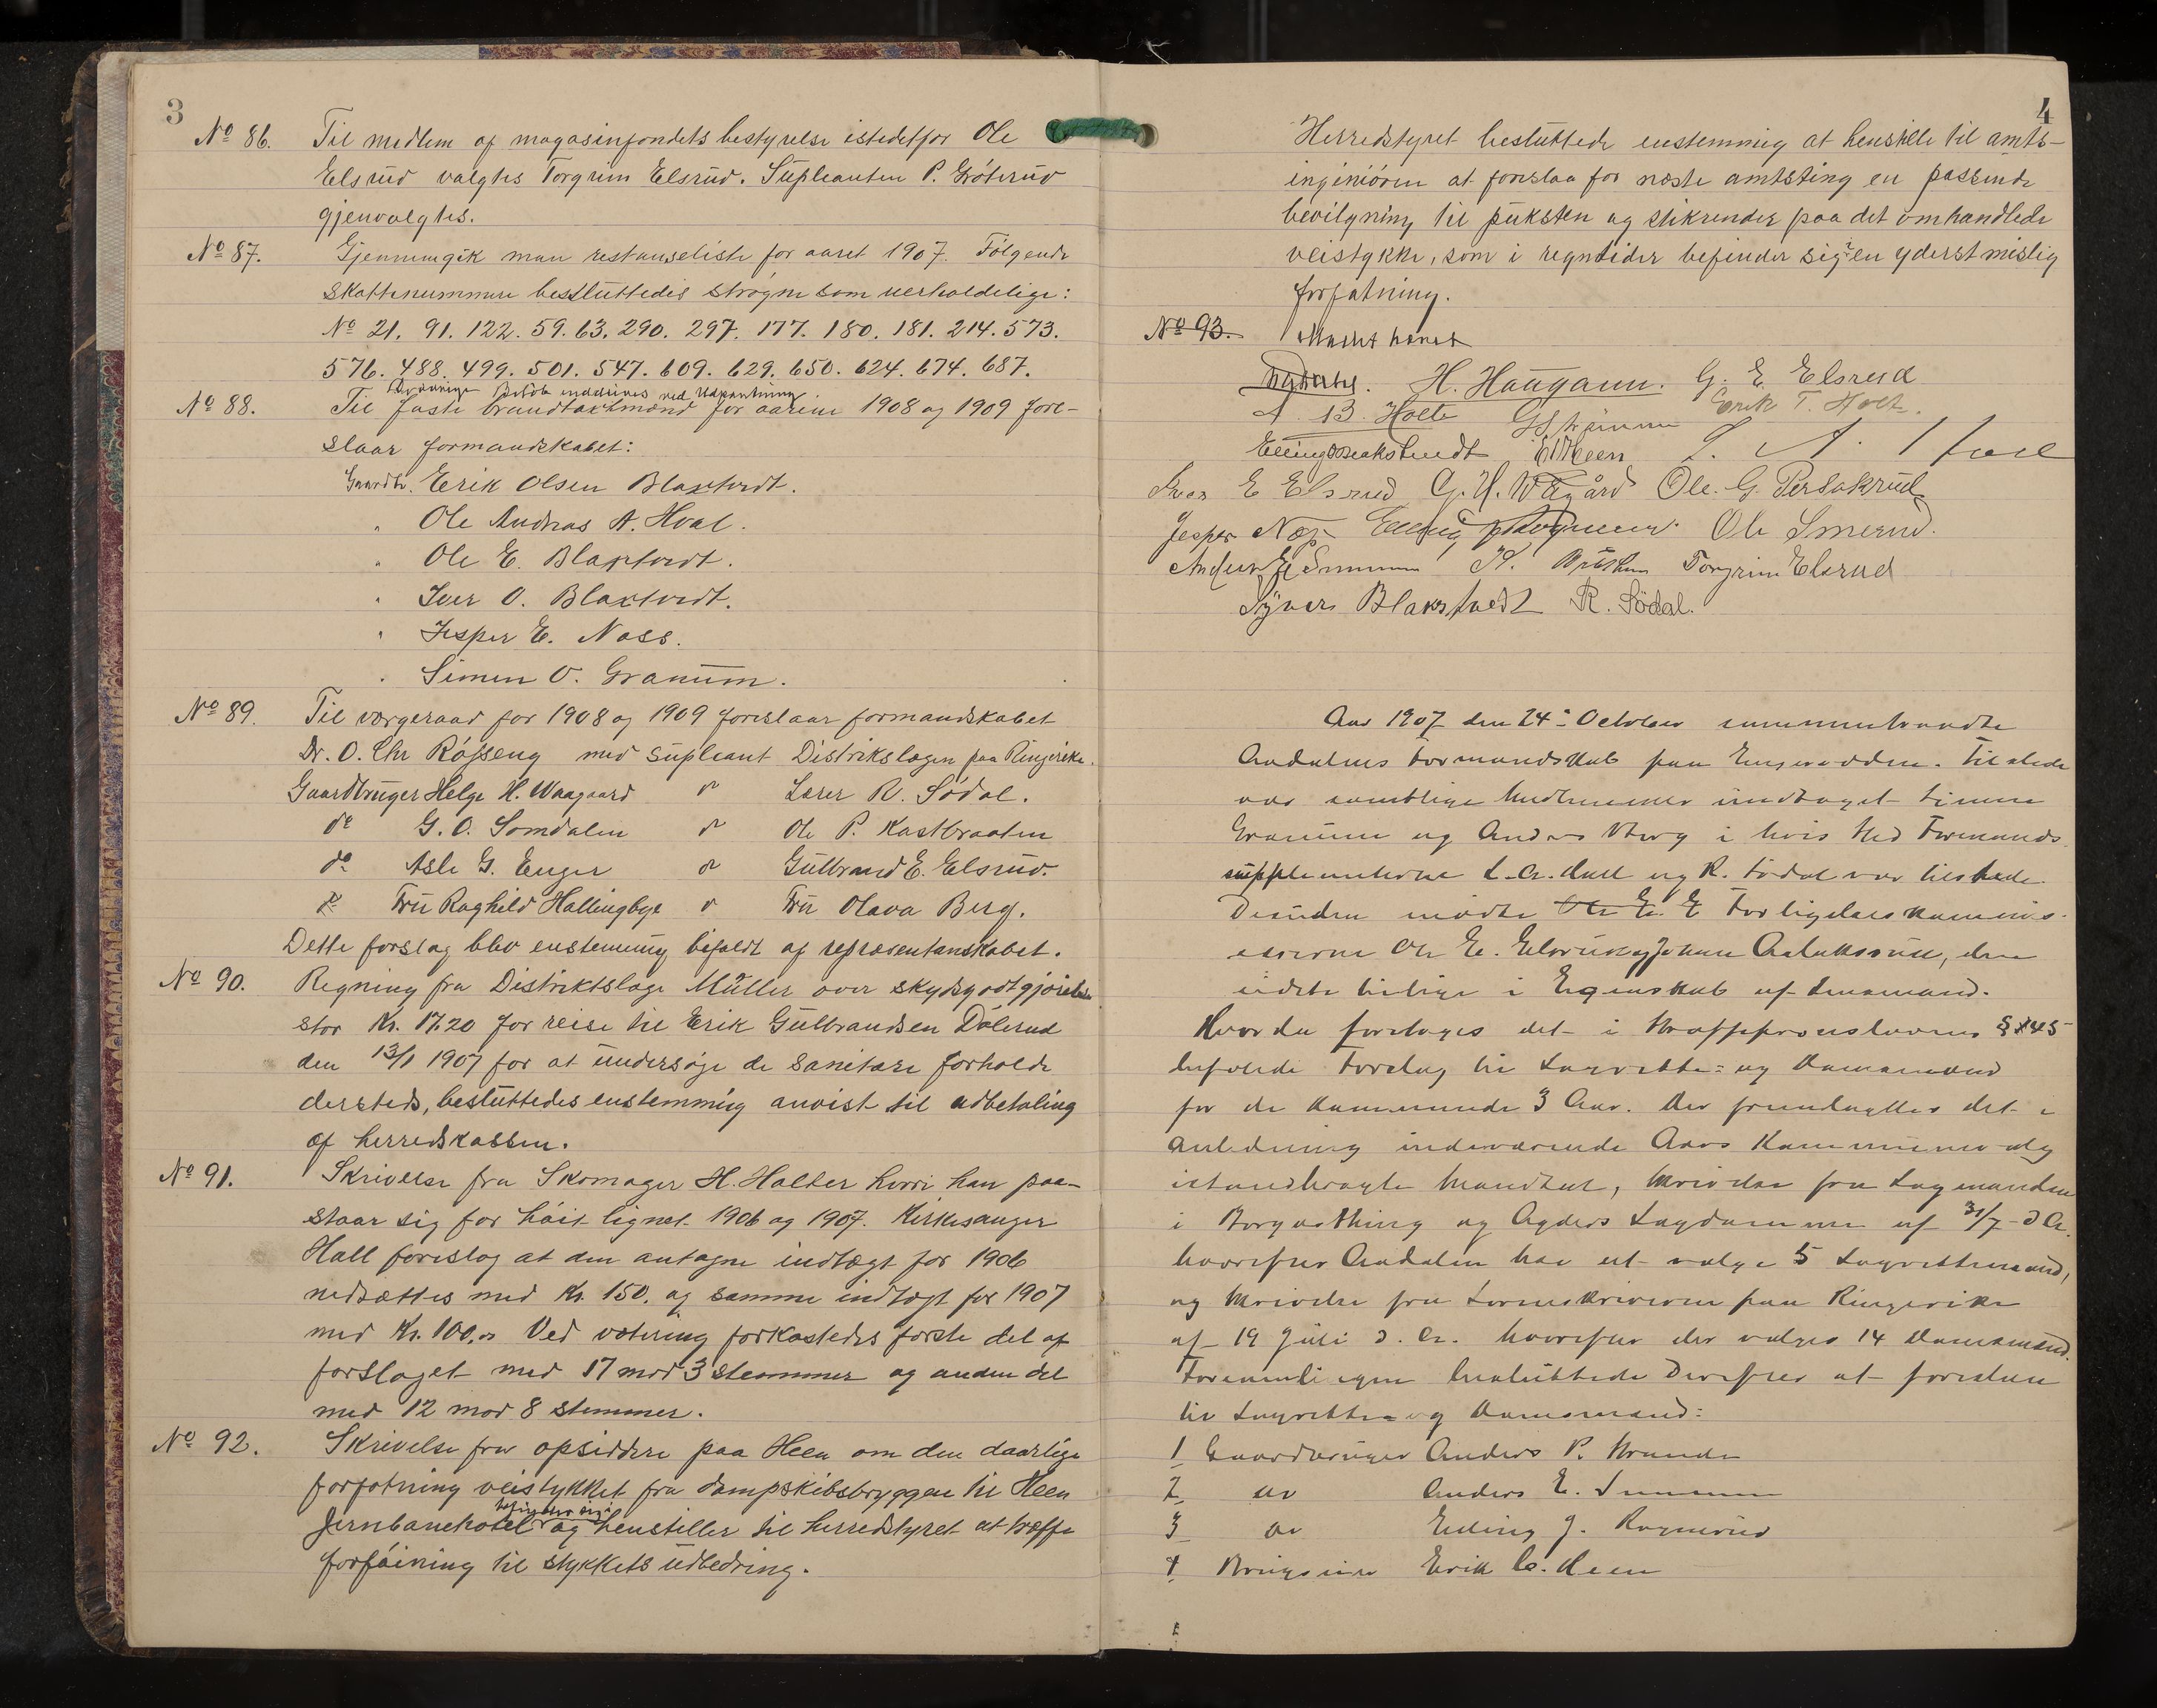 3
No 86. Til medlem af magasinfondets bestyrelse istedetfor Ole
Elsrud valgtes Torgrim Elsrud. Supleanten P. Gröterud
gjenvalgtes.
No 87. Gjennemgik man restanseliste for aaret 1907. Følgende
skattenummere besluttedes strøgne som uerholdelige:
No 21. 91. 122. 59. 63. 290. 297. 177. 180. 181. 214. 573.
576. 488. 499. 501. 547. 609. 629. 650. 624. 674. 687.
De øvrige beløb inddrives ved Udpantning.
No 88. Til faste brandtakstmænd for aarene 1908 og 1909 fore-
slaar formandskabet:
Gaardbr. Erik Olsen Blakstvedt.
" Ole Andreas A. Hval.
" Ole E. Blakstvedt.
" Iver O. Blakstvedt.
" Jesper E. Næss.
" Simen O. Granum.
No 89. Til værgeraad for 1908 og 1909 foreslaar formandskabet
Dr. O. Chr Røsseng med supleant Distrikslægen paa Ringerike.
Gaardbruger Helge H. Waagaard do Lærer R. Sødal.
do G. O. Somdalen do Ole P. Kastbraaten
do Asle G. Enger do Gulbrand E. Elsrud.
Fru Raghild Hallingbye do Fru Olava Berg.
Dette forslag blev enstemmig bifaldt af representanskabet.
No 90. Regning fra Distriktslæge Müller over skydsgodtgjörelse
stor Kr. 17.20 for reise til Erik Gulbrandsen Dölerud
den 13/1 1907 for at undersøge de sanitære forholde
dersteds, besluttedes enstemmig anvist til udbetaling
af herredskassen.
No 91. Skrivelse fra Skomager H. Halder hvori han paa-
staar sig for höit lignet 1906 og 1907. Kirkesanger
Hall foreslog at den antagne indtægt for 1906
nedsættes med Kr. 150. og samme indtægt for 1907
med Kr. 100,00 Ved votering forkastedes første del af
forslaget med 17 mod 3 stemmer og anden del
med 12 mod 8 stemmer.
No 92. Skrivelse fra opsiddere paa Heen om den daarlige
forfatning veistykket fra dampskibsbryggen til Heen
befinder sig i
Jernbanehotel og henstiller til herredstyret at træffe
forföining til stykkets udbedring.
4
Herredstyret besluttede enstemmig at henstille til amts-
ingeniören at foreslaa for næste amtsting en passende
bevilgning til puksten og stikrender paa det omhandlede
veistykke, som i regntider befinder sig i en yderst mislig
forfatning.
No 93. Mødet hævet
H. Haugann. G. E. Elsrud
A B. Holte Erik T. Holt.
Elling Blakstvedt E Heen
Iver E Elsrud G. H. Wågård Ole. G. Persakrud
Jesper Næss Ole Smerud.
Anders E Semmen Torgrim Elsrud
Syver Blakstvedt R. Södal.
Aar 1907 den 24de October sammentraadte
Aadalens Formandskab paa Engeradden. Tilstede
var samtlige Medlemmer undtaget Simen
Granum og Anders Berg i hvis Sted Formands
supplenterne L. A. Hall og R. Södal var tilstede.
Desuden mødte Ole E. E Forligelseskommis-
ærerne Ole E. Elsrud og Johan Aslaksrud, den
sidste tillige i Egenskab af Lensmand.
Hvor da foretages det i Straffeproceslovens § 45
befalede Forslag til Lagrette- og Domsmænd
for de kommende 3 Aar. Der fremlagdes det i
anledning indeværende Aars Kommunevalg
istandbragte Mandtal, skrivelse fra Lagmanden
i Borgarthing og Agders Lagdømme af 31/7 d A.
hvorefter Aadalen har at vælge 5 Lagrettemænd,
og skrivelse fra Sorenskriveren paa Ringerike
af 19 Juli d. A. hvorefter der vælges 14 Domsmænd.
Forsamlingen besluttede derefter at foreslaa
til Lagrette og Domsmænd:
1 Gaardbruger Anders P. Strande
2 do Anders E. Semmen
3 do Elling J. Rognerud
4 Erik C. Heen